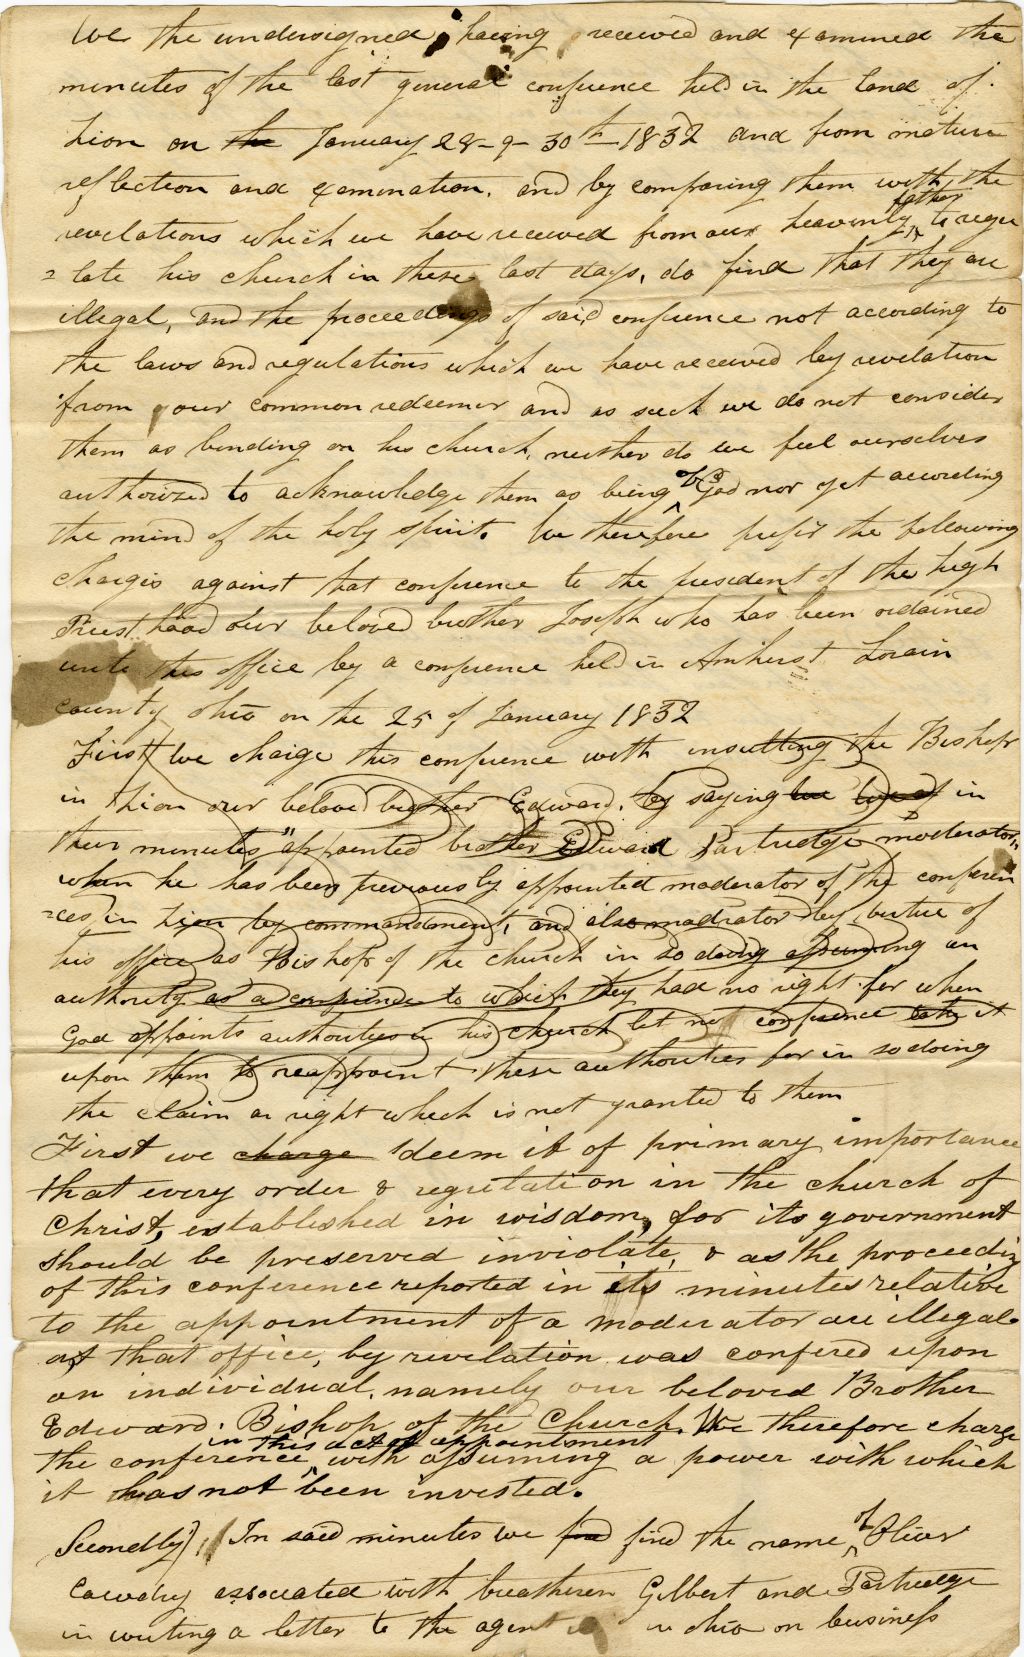 We the undersigned, having received and examined the
minutes of the last general confrence held in the land of
Zion on the January 28-9-30th 1832 and from mature
reflection and examination, and by comparing them with the
revelations which we have received from our heavenly father to regu
=late his church in these last days, do find that they are
illegal, and the proceedings of said confrence not according to
the laws and regulations which we have received by revelation
from our common redeemer and as such we do not consider
them as binding on his church, neither do we feel ourselves
authorized to acknowledge them as being of God nor yet according
the mind of the holy spirit. We therefore prefer the following
charges against that confrence to the president of the high
Priesthood our beloved brother Joseph who has been ordained
unto this office by a confrence held in Amherst Lorain
county ohio on the 25 of January 1832
First we charge this confrence with insulting the Bishop
in Zion our beloved brother Edward, by saying in
their minutes "appointed brother Edward Partridge moderator,"
when he has been previously appointed moderator of the conferen
=ces in Zion by commandment, and also modrator by virtue of
his office as Bishop of the church in so doing assuming an
authority as a confrence to which they had no right for when
God appoints authorities in his church let no confrence take it
upon them to reappoint these authorities for in so doing
the claim a right which is not granted to them
First we charge deem it of primary importance
that every order & regulation in the church of
Christ, established in wisdom, for its government
should be preserved inviolate, & as the proceeding
of this conference reported in its minutes relative
to the appointment of a moderator are illegal.
as that office, by revelation was confered upon
an individual, namely our beloved Brother
Edward. Bishop of the Church. We therefore charge
the conference in this act of appointment with assuming a power with which
it has not been invested.
Secondly In said minutes we find the name of Oliver
Cowdry associated with breatheren Gilbert and Partridge
in writing a letter to the agent in ohio on business